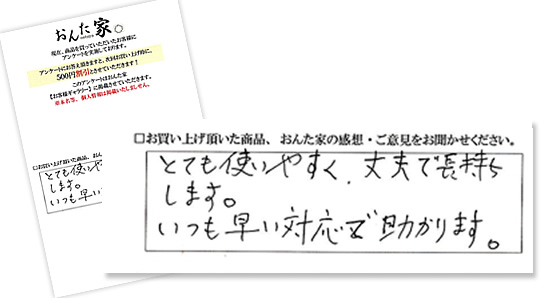 おんた家。
現在、商品を買っていただいたお客様に
アンケートを実施しております。
アンケートにお答え頂きますと、次回お買い上げ時に、
500円割引とさせていただきます!
このアンケートはおんた家
【お客様ギャラリー】に掲載させていただきます。
※本名等、個人情報は掲載いたしません。
□お買い上げ頂いた商品、おんた
とても使いや
します。
いつも早い
□お買い上げ頂いた商品、おんた家の感想・ご意見をお聞かせください。
とても使いやすく、丈夫で長持ち
します。
いつも早い対応で助かります。